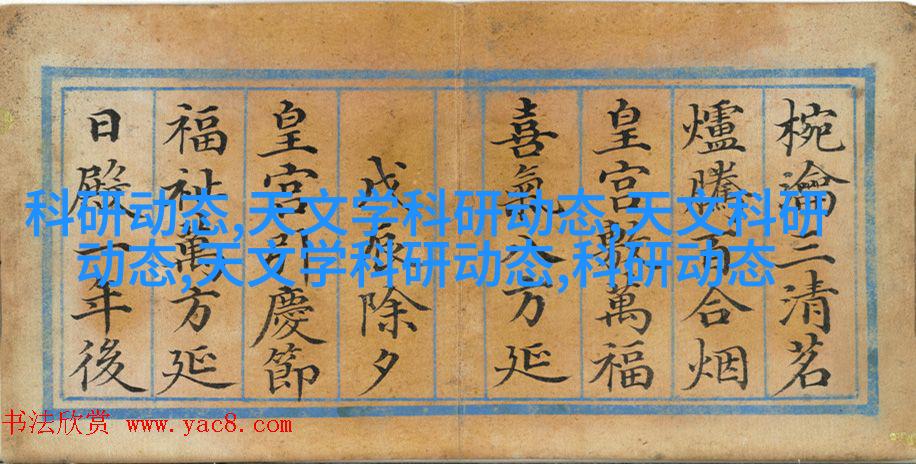 椀瀹三清茗
爐騰百合烟
皇宮敷萬福
喜氣八方延
戊辰除夕
皇宮引慶節
福祉萬方延
日殿一年後
科研动态,天文学科研动态,天文科研
动态,天文学科研动态,科研动态
书法欣赏 www.yac8.com